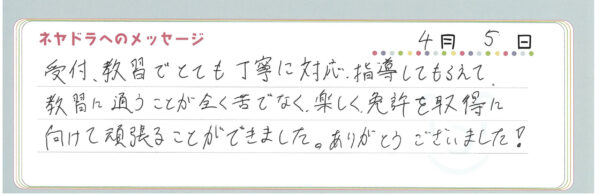 ネヤドラへのメッセージ
4月 5日
受付、教習でとても丁寧に対応、指導してもらえて、
教習に通うことが全く苦でなく、楽しく、免許を取得に
向けて頑張ることができました。ありがとうございました!